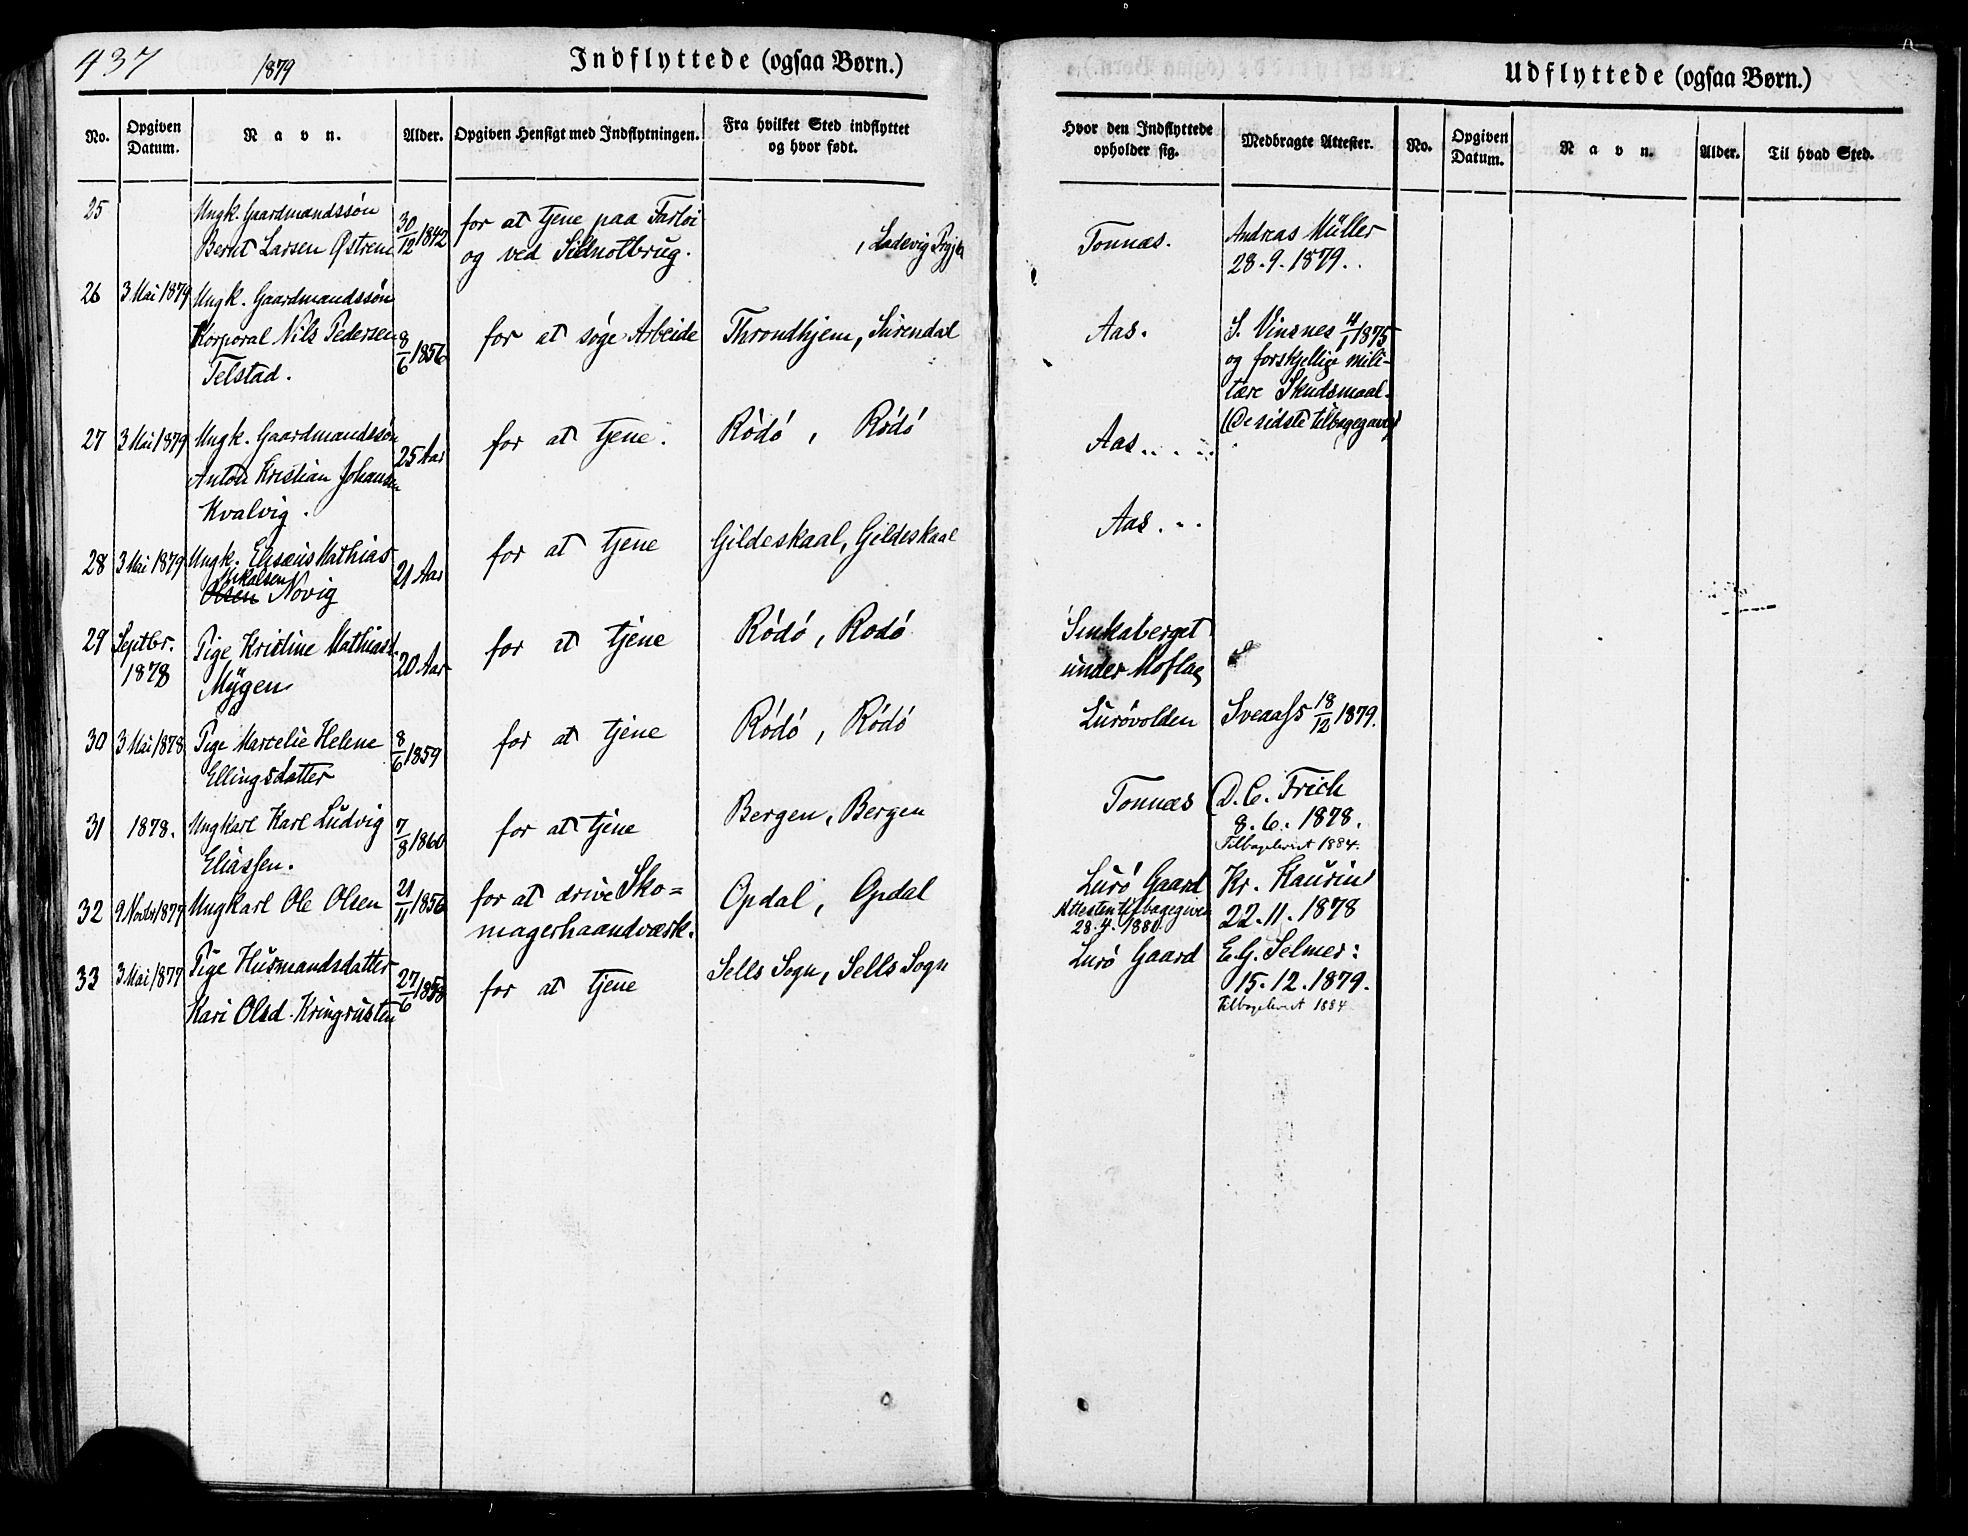 437
1879
Indflyttede (ogsaa Børn.)
No.
Opgiven Datum.
Navn.
Alder.
Opgiven Hensigt med Indflytningen.
Fra hvilket Sted indflyttet og hvor født.
25
Ungk. Gaardmandssøn
Bernt Larsen Østrem
30/12 1842
for at tjene paa Fartøi
og ved Sildnotbrug.
26
3 Mai 1879
Ungk. Gaardmandssøn
Korporal Nils Pedersen
Telstad.
8/6 1856
for at søge Arbeide
Throndhjem, Surendal
27
3 Mai 1879
Ungk. Gaardmandssøn
Anton Kristian Johansen
Kvalvig.
25 Aar
for at tjene.
Rödö, Rödö
28
3 Mai 1879
Ungk. Elisæus Mathias
Nikolsen
Olsen Novig
21 Aar
for at tjene
Gildeskaal, Gildeskaal
29
Septbr.
1878
Pige Kristine Mathiasd.
Mygen
20 Aar
for at tjene
Rödö, Rodö
30
3 Mai 1878
Pige Marcelie Helene
Ellingsdatter
8/6 1859
for at tjene
Rödö, Rödö
31
1878.
Ungkarl Karl Ludvig
Eliassen.
7/8 1860
for at tjene
Bergen, Bergen
32
9 Novbr 1877
Ungkarl Ole Olsen
21/11 1856
for at drive Sko=
magerhaandværk.
Opdal, Opdal
33
3 Mai 1877
Pige Husmandsdatter
Kari Olsd. Kringrusten
27/6 1858
for at tjene
Sells Sogn, Sells Sogn
Udflyttede (ogsaa Børn.)
Hvor den Indflyttede opholder sig.
Medbragte Attester.
No.
Opgiven Datum.
Navn.
Alder.
Til hvad Sted.
Tonnæs.
Andreas Müller
28.9.1879.
Aas.
S. Vinsnes 4/1 1875
og forskjellige mili-
tære Skudsmaal.
(De sidste tilbagegavet)
Aas.
Aas.
under Moflag
Lurövolden
Sveaass 18/12 1879.
Tonnæs
D. C. Frich
8.6.1878.
Tilbageleveret 1884.
Lurö Gaard
Attesten tilbagegiven
28.4.1880
Kr. Kaurin
22.11.1878
Lurö Gaard
E.G. Selmer:
15.12.1879.
Tilbageleveret 1884